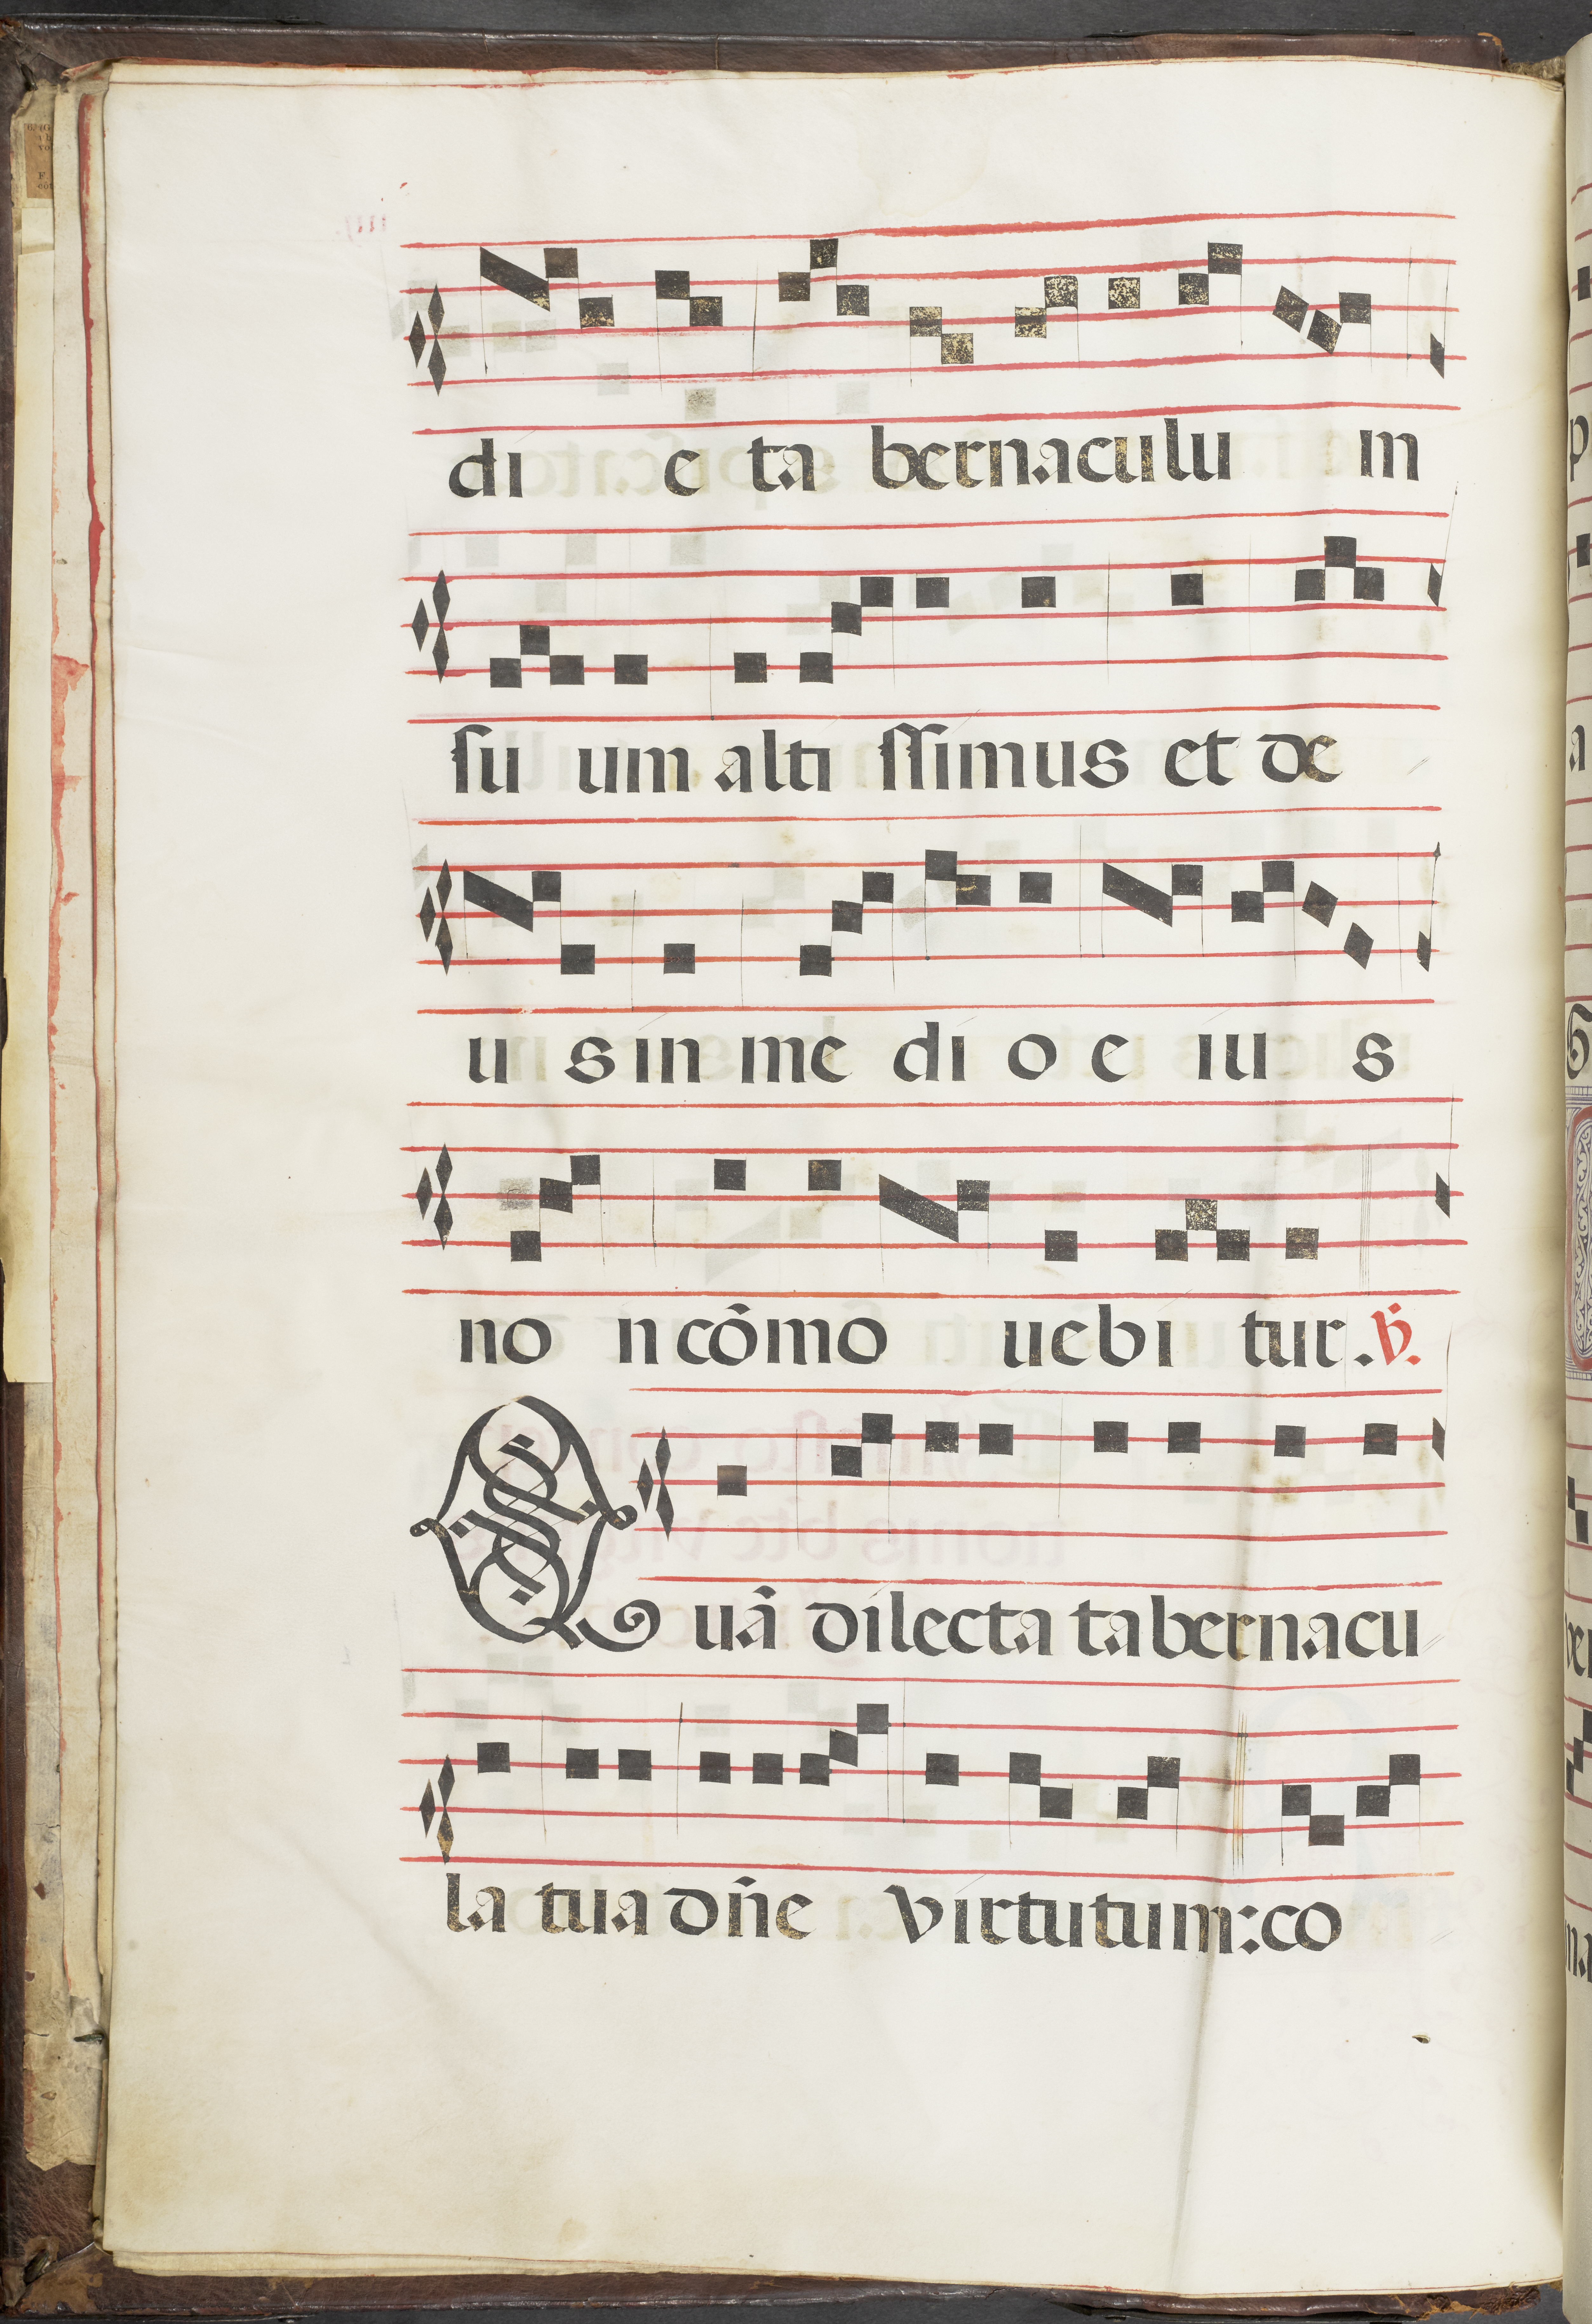 di e ta bernaculu in
ſu um alti ſſimus et de
u s in me di o e iu s
no n cōmo uebi tur. ℣.
Quā dilecta tabernacu
la tua dñe virtutum: co